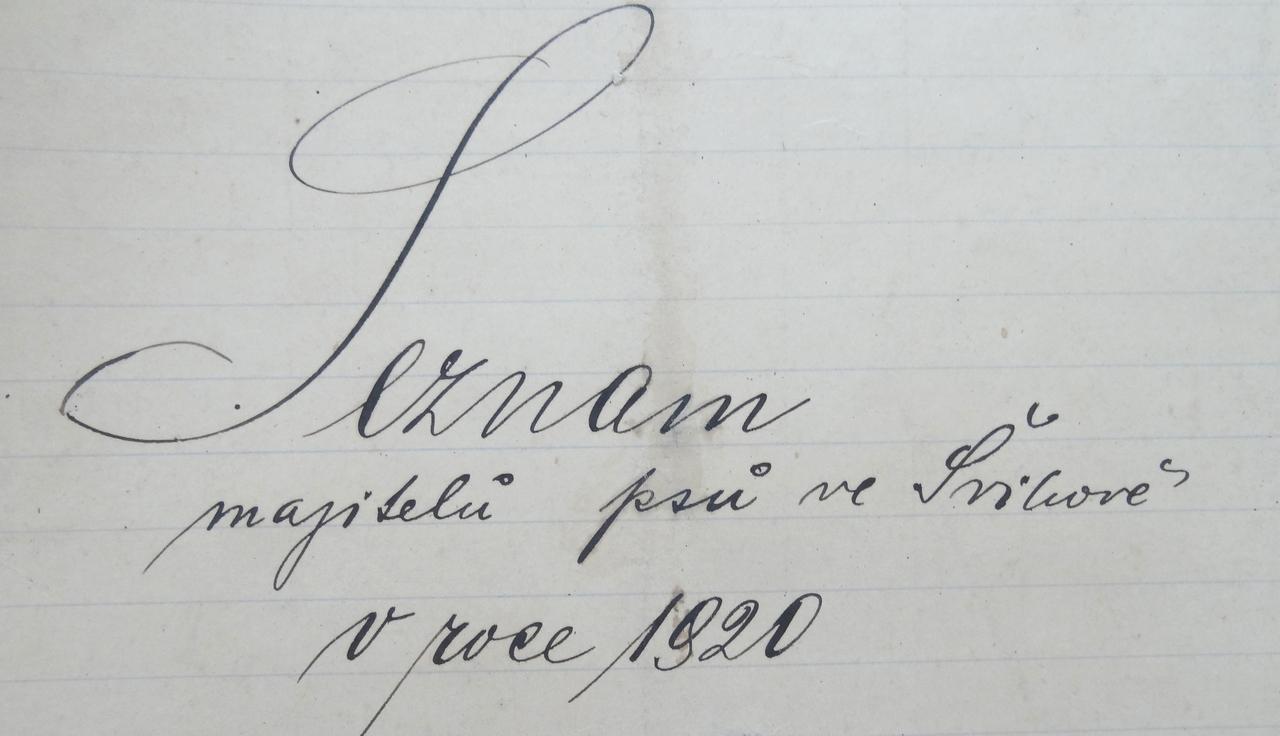 Seznam
majitelů psů ve Švihově
v roce 1920